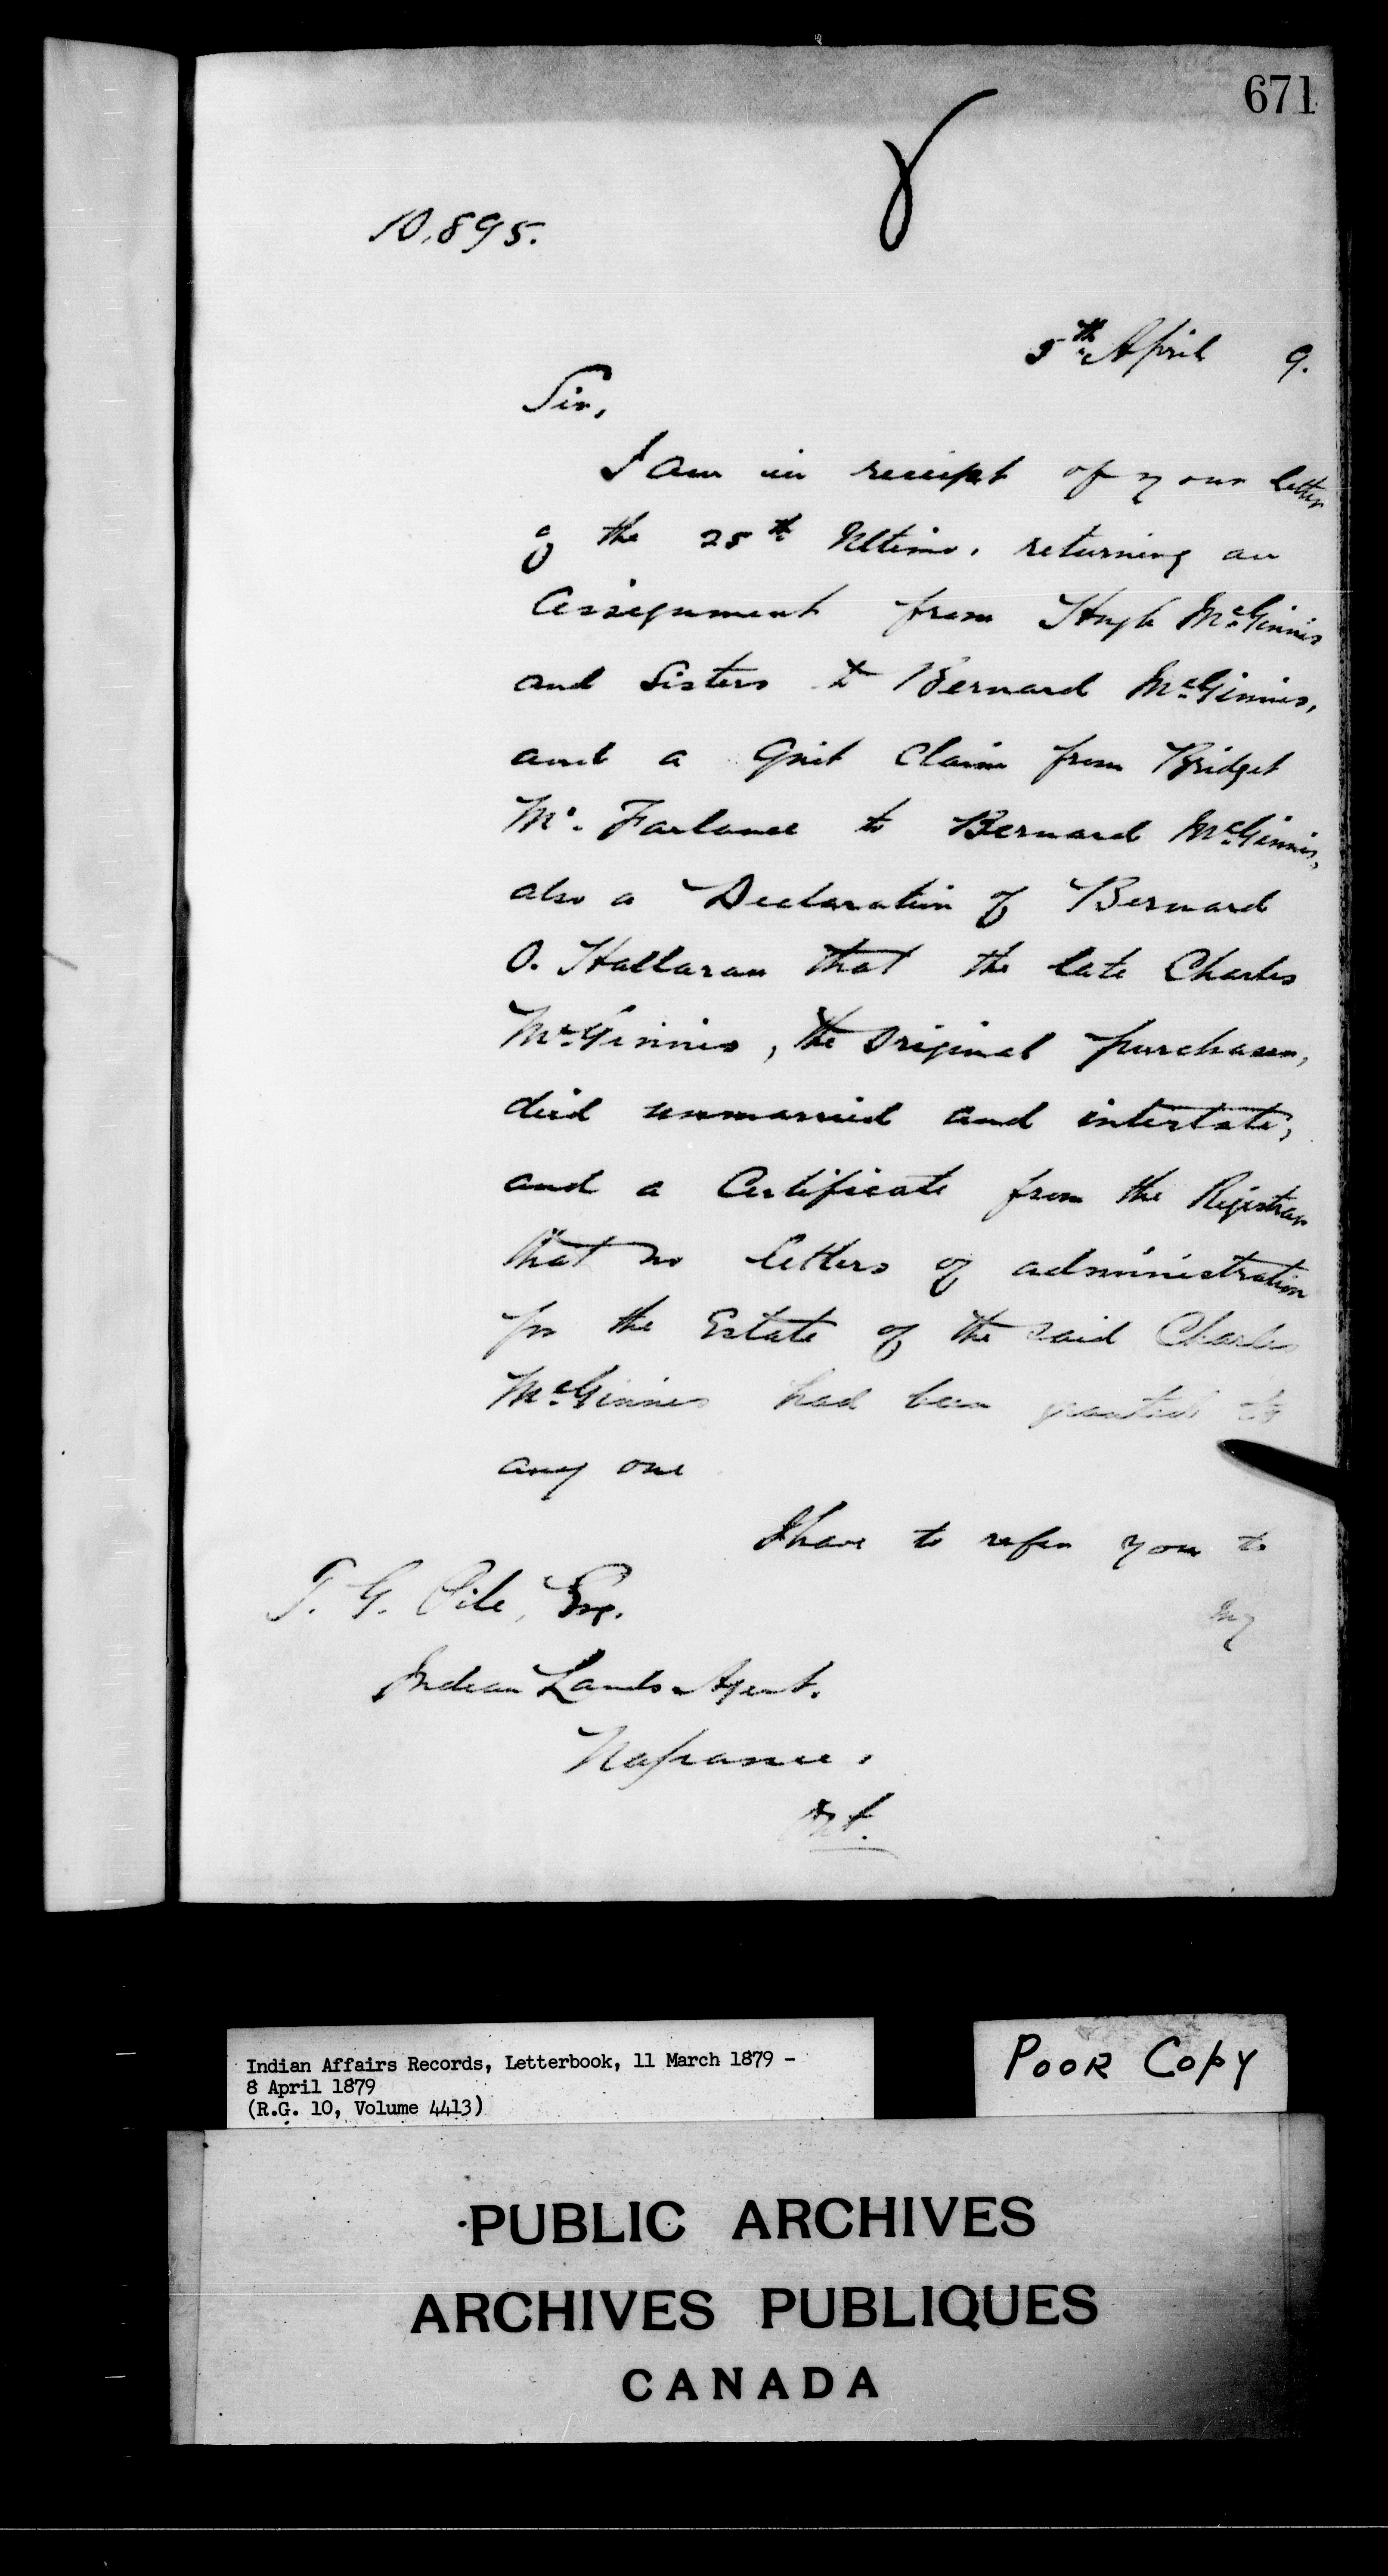 671
10,895.
5th April 9.
Sir,
I am in receipt of your letter
of the 25th Ultimo, returning an
Assignment from Hugh McGinnis
and Sisters to Bernard McGinnis,
and a Quit Claim from Bridget
Mc. Farlance to Bernard McGinnis,
also a Declaration of Bernard
O. Hallaran that the late Charles
McGinnis, the original purchaser,
died unmarried and intestate,
and a Certificate from the Registrar
that no letters of administration
for the Estate of the said Charles
McGinnis had been granted to
any one
I have to refer you to
my
T. G. Pile, Esq.
Indian Lands Agent.
Napanee,
Ont.
Indian Affairs Records, Letterbook, 11 March 1879 -
8 April 1879
(R.G. 10, Volume 4413)
POOR COPY
PUBLIC ARCHIVES
ARCHIVES PUBLIQUES
CANADA